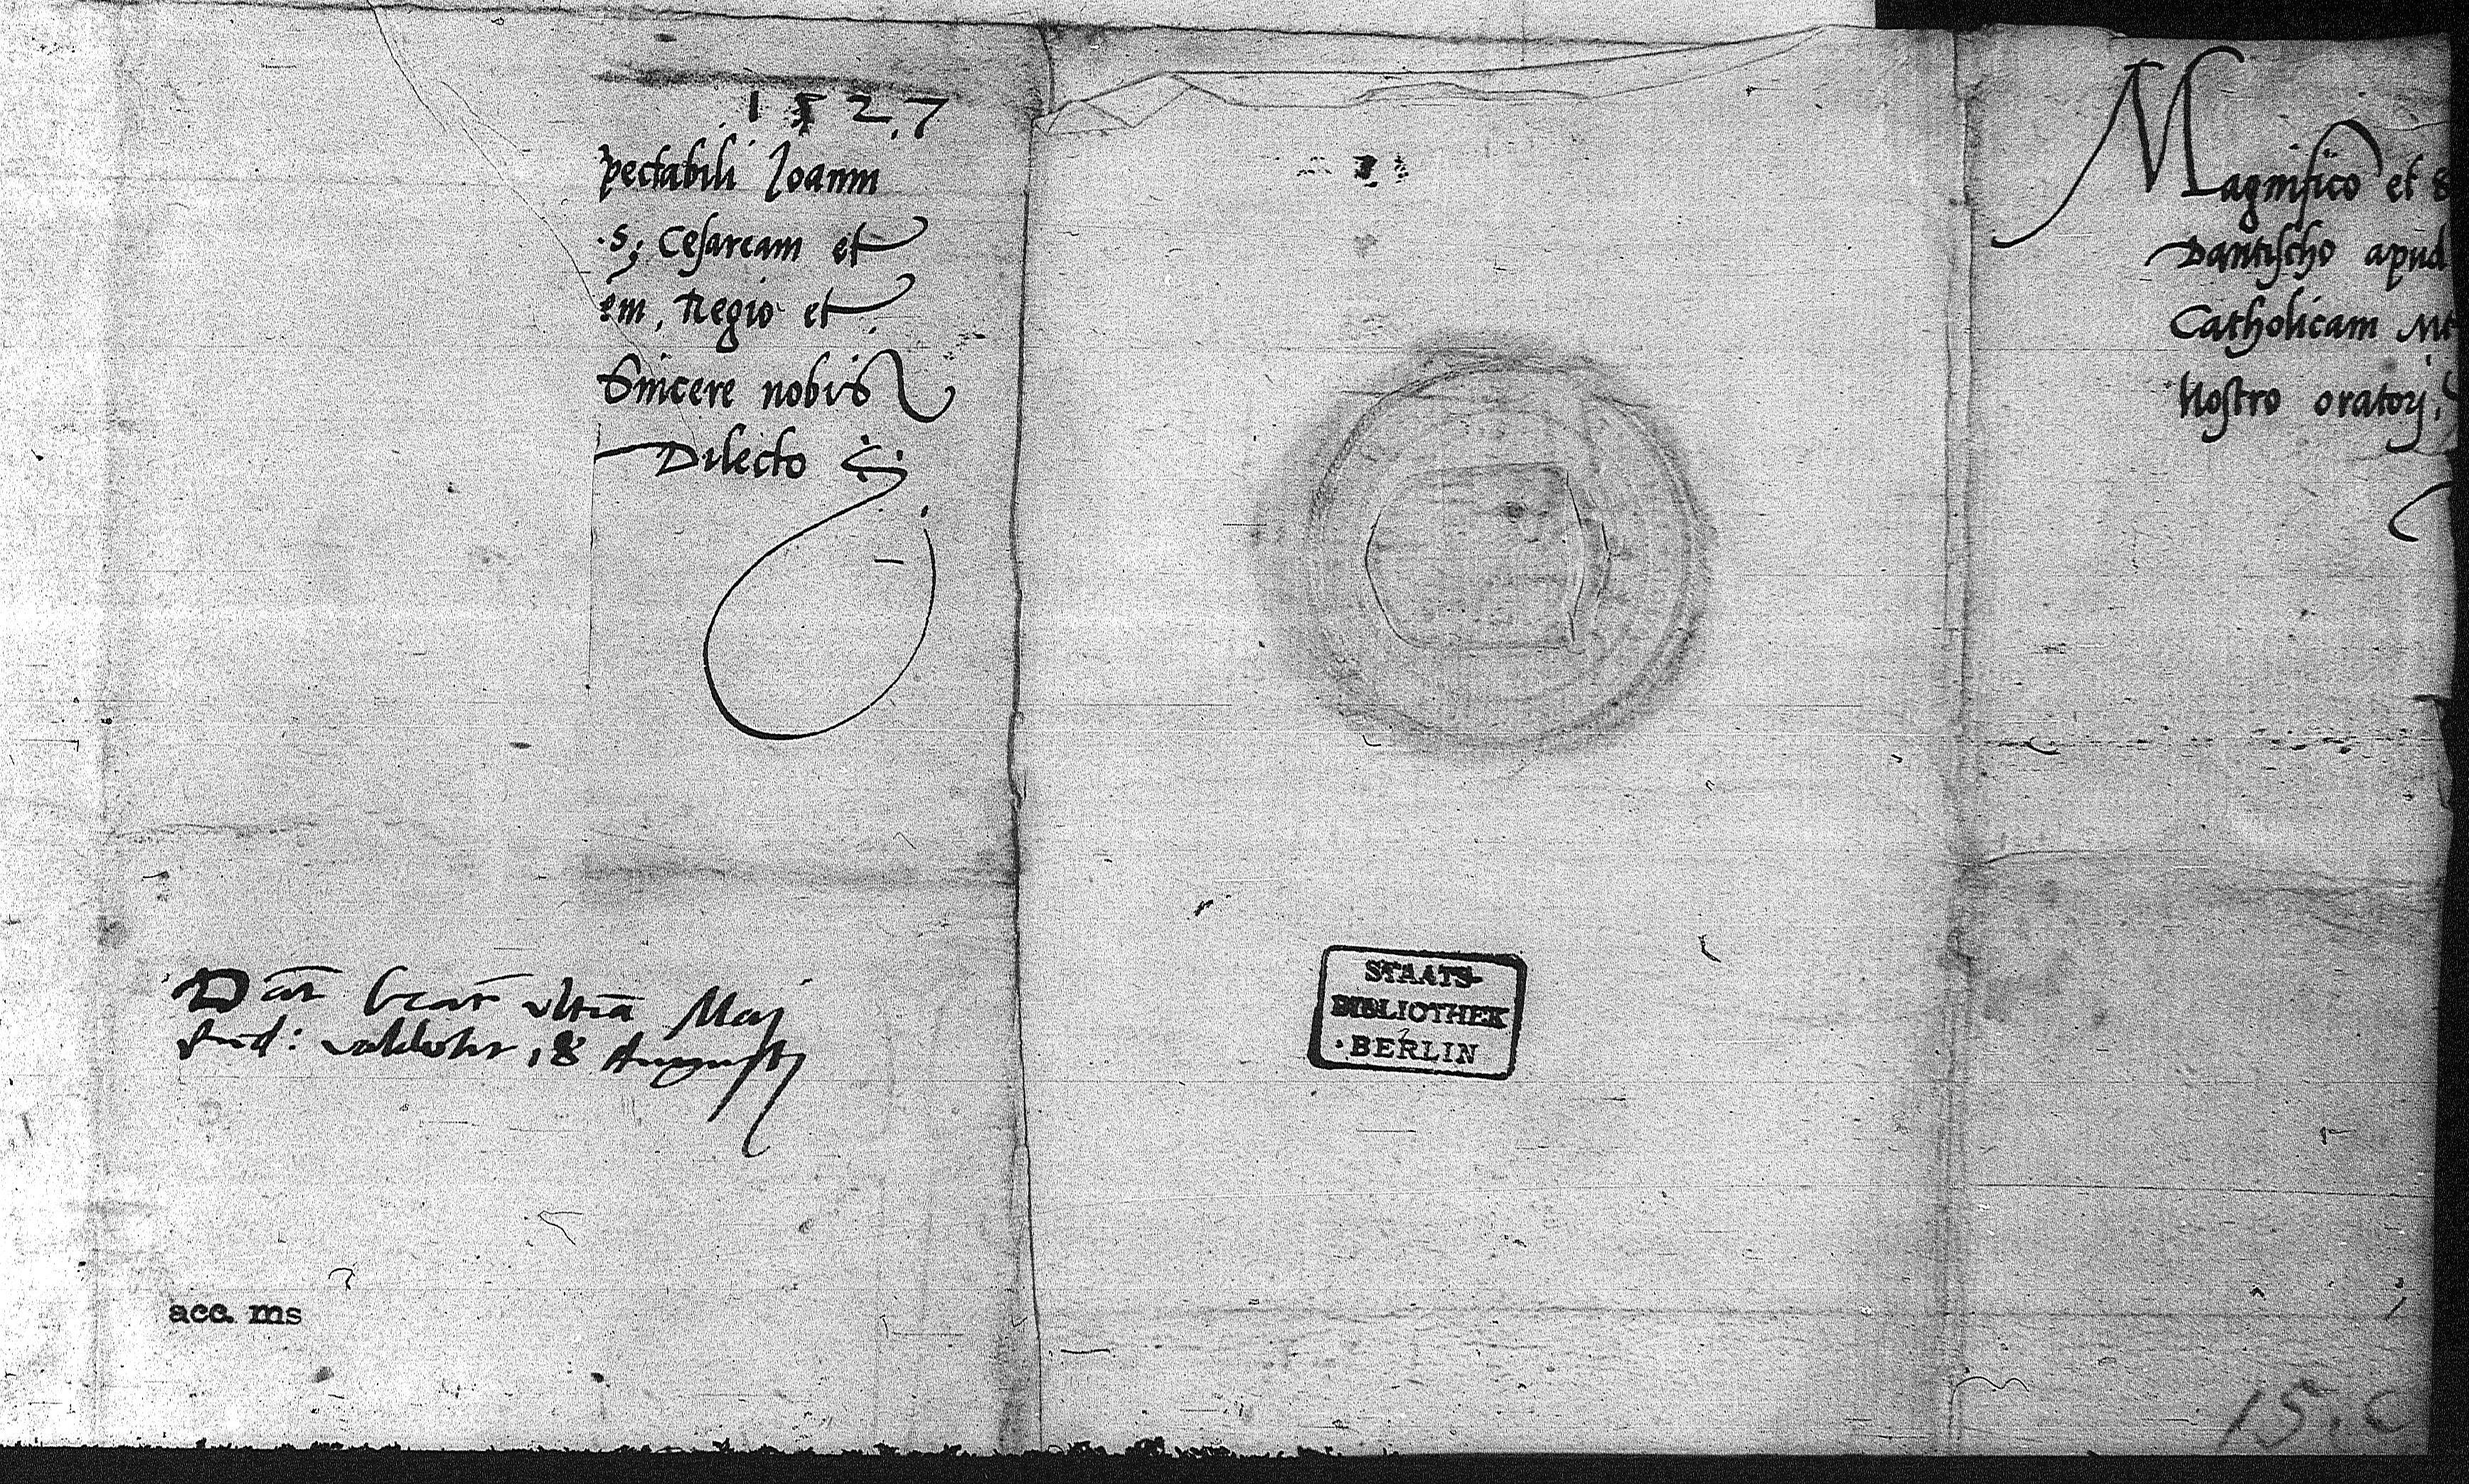 1527
pectabili Joanni
.S. Cesaream et
em, Regio et
Sincere nobis
Dilecto
Dat
Maj
18 Augusti
acc. ms
STAATS-
BIBLIOTHEK
BERLIN
Magnifico et S
Dantischo apud
Catholicam Mt
Nostro oratorj,
15. C